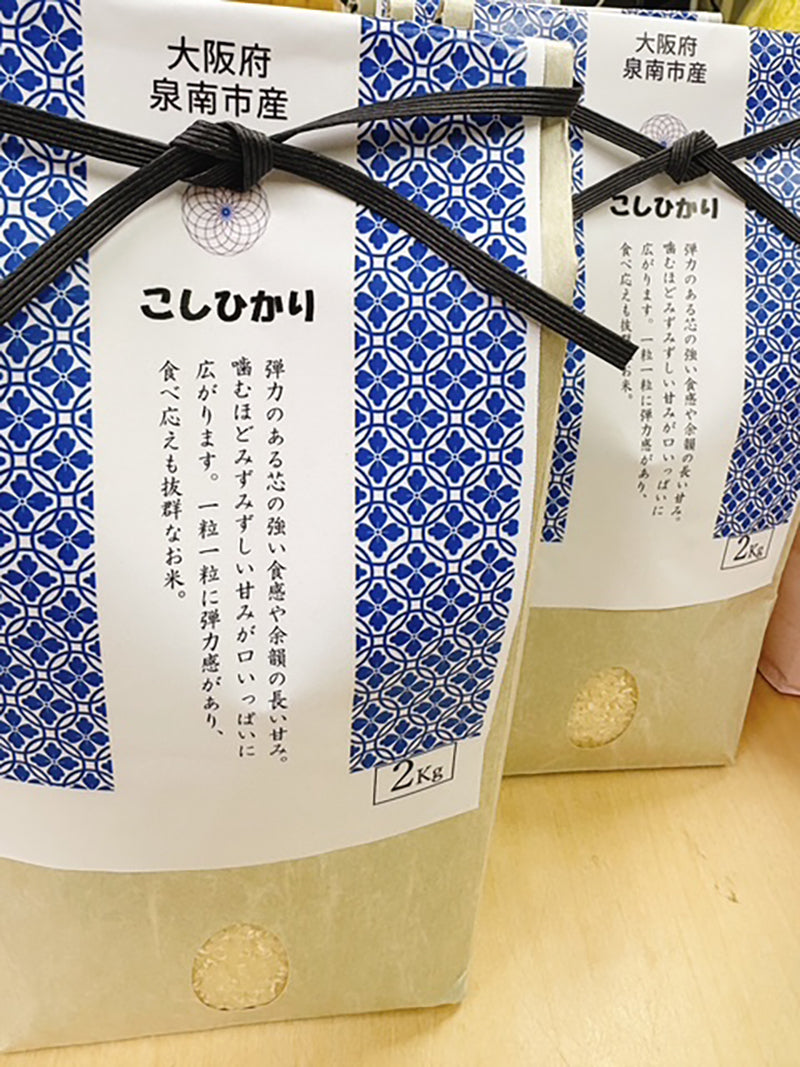 大阪府
泉南市産
こしひかり
弾力のある芯の強い食感や余韻の長い甘み。
噛むほどみずみずしい甘みが口いっぱいに
広がります。一粒一粒に弾力感があり、
食べ応えも抜群なお米。
2Kg
大阪府
泉南市産
こしひかり
弾力のある芯の強い食感や余韻の長い甘み。
噛むほどみずみずしい甘みが口いっぱいに
広がります。一粒一粒に弾力感があり、
食べ応えも抜群お米。
2Kg